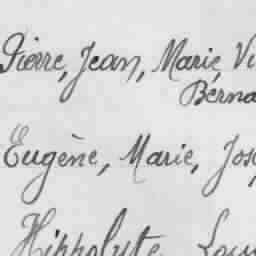 Pierre, Jean, Marie, Vi
Berna
Eugène, Marie, Jos
Hippolyte Lou